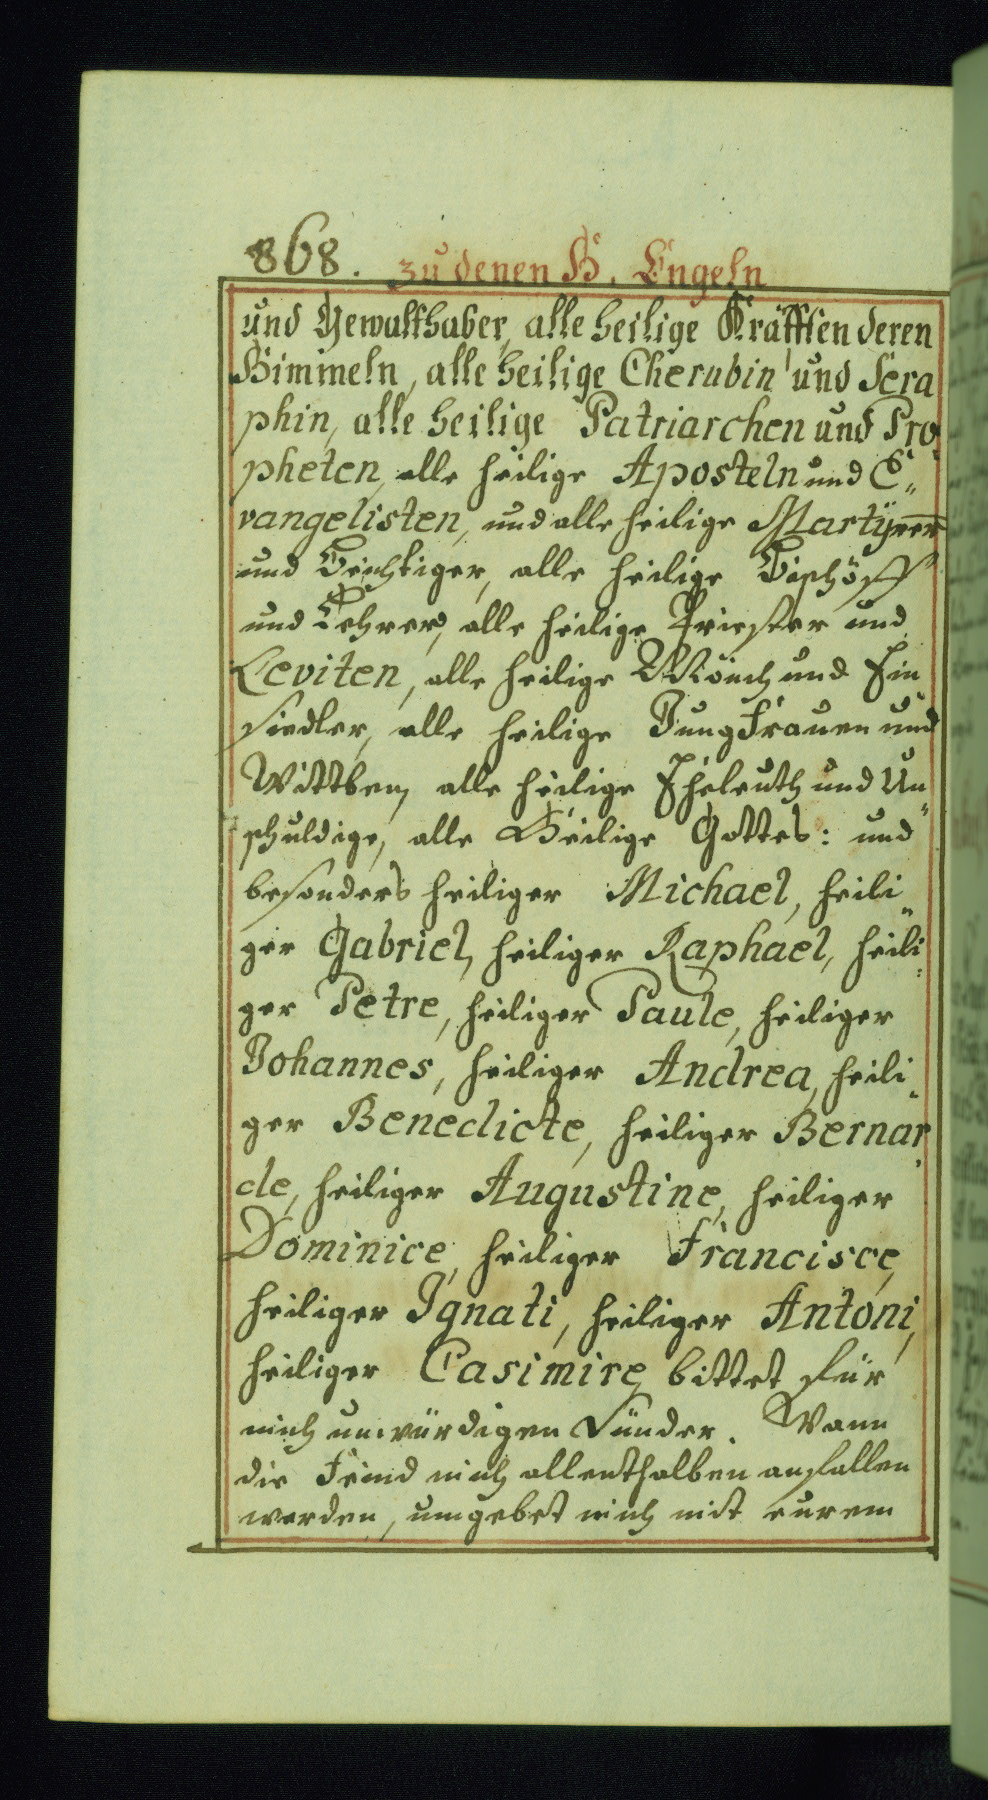 868. zu denen H. Engeln
und Gewalthaber, alle heilige Kräfften deren
Himmeln, alle heilige Cherubin und Sera
phin, alle heilige Patriarchen und Pro„
pheten, alle heilige Aposteln und E„
vangelisten, und alle heilige Martÿrer
und Beichtiger, alle heilige Bischöff
und Lehrer, alle heilige Priester und
Leviten, alle heilige Mönch und Ein
siedler, alle heilige Jungfrauen und
Wittben, alle heilige Eheleuth und Un„
schuldige, alle Heilige Gottes: und
besonders heiliger Michael, heili„
ger Gabriel, heiliger Raphael, heili„
ger Petre, heiliger Paule, heiliger
Johannes, heiliger Andrea, heili„
ger Benedicte, heiliger Bernar„
de, heiliger Augustine, heiliger
Dominice, heiliger Francisce,
heiliger Ignati, heiliger Antoni,
heiliger Casimire, bittet für
mich unwürdigen Sünder. Wann
die Feind mich allenthalben anfallen
werden, umgebet mich mit eurem